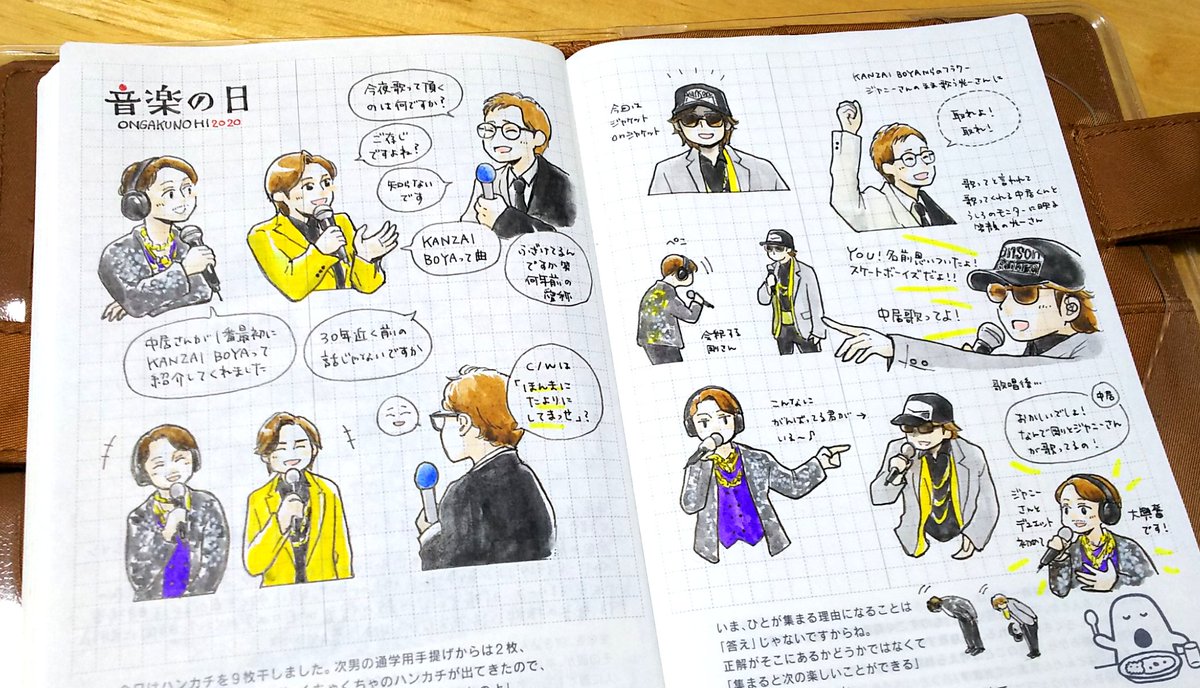 音楽の日
ONGAKUNOHI 2020
今夜歌って頂く
のは何ですか?
ご存じ
ですよね?
知らない
です
KANZAI
BOYAって曲
ふざけてるん
ですか笑
何年前の
愛称
中居さんが1番最初に
KANZAI BOYAって
紹介してくれました
30年近く前の
話じゃないですか
C/Wは
「ほんまに
たよりに
してまっせ」?
今日はハンカチを9枚干しました。次男の通学用手提げからは2枚、
くちゃくちゃのハンカチが出てきたので、
今回は
ジャケット
onジャケット
KANZAI BOYAからのフラワー
ジャニーさんのまま歌う光一さんに
取れよ!
取れ!
歌ってと言われて
歌ってくれる中居くんと
うしろのモニターに映る
笑顔の光一さん
ペこ
会釈する
剛さん
YOU!名前思いついたよ!
スケートボーイズだよ!!
中居歌ってよ!
こんなに
がんばってる君が
いる〜♪
歌唱後…
中居
おかしいでしょ!
なんで剛とジャニーさん
が歌ってるの!
ジャニー
さんと
デュエット
初めて
大興奮
です!
いま、ひとが集まる理由になることは
「答え」じゃないですからね。
正解がそこにあるかどうかではなくて
「集まると次の楽しいことができる」